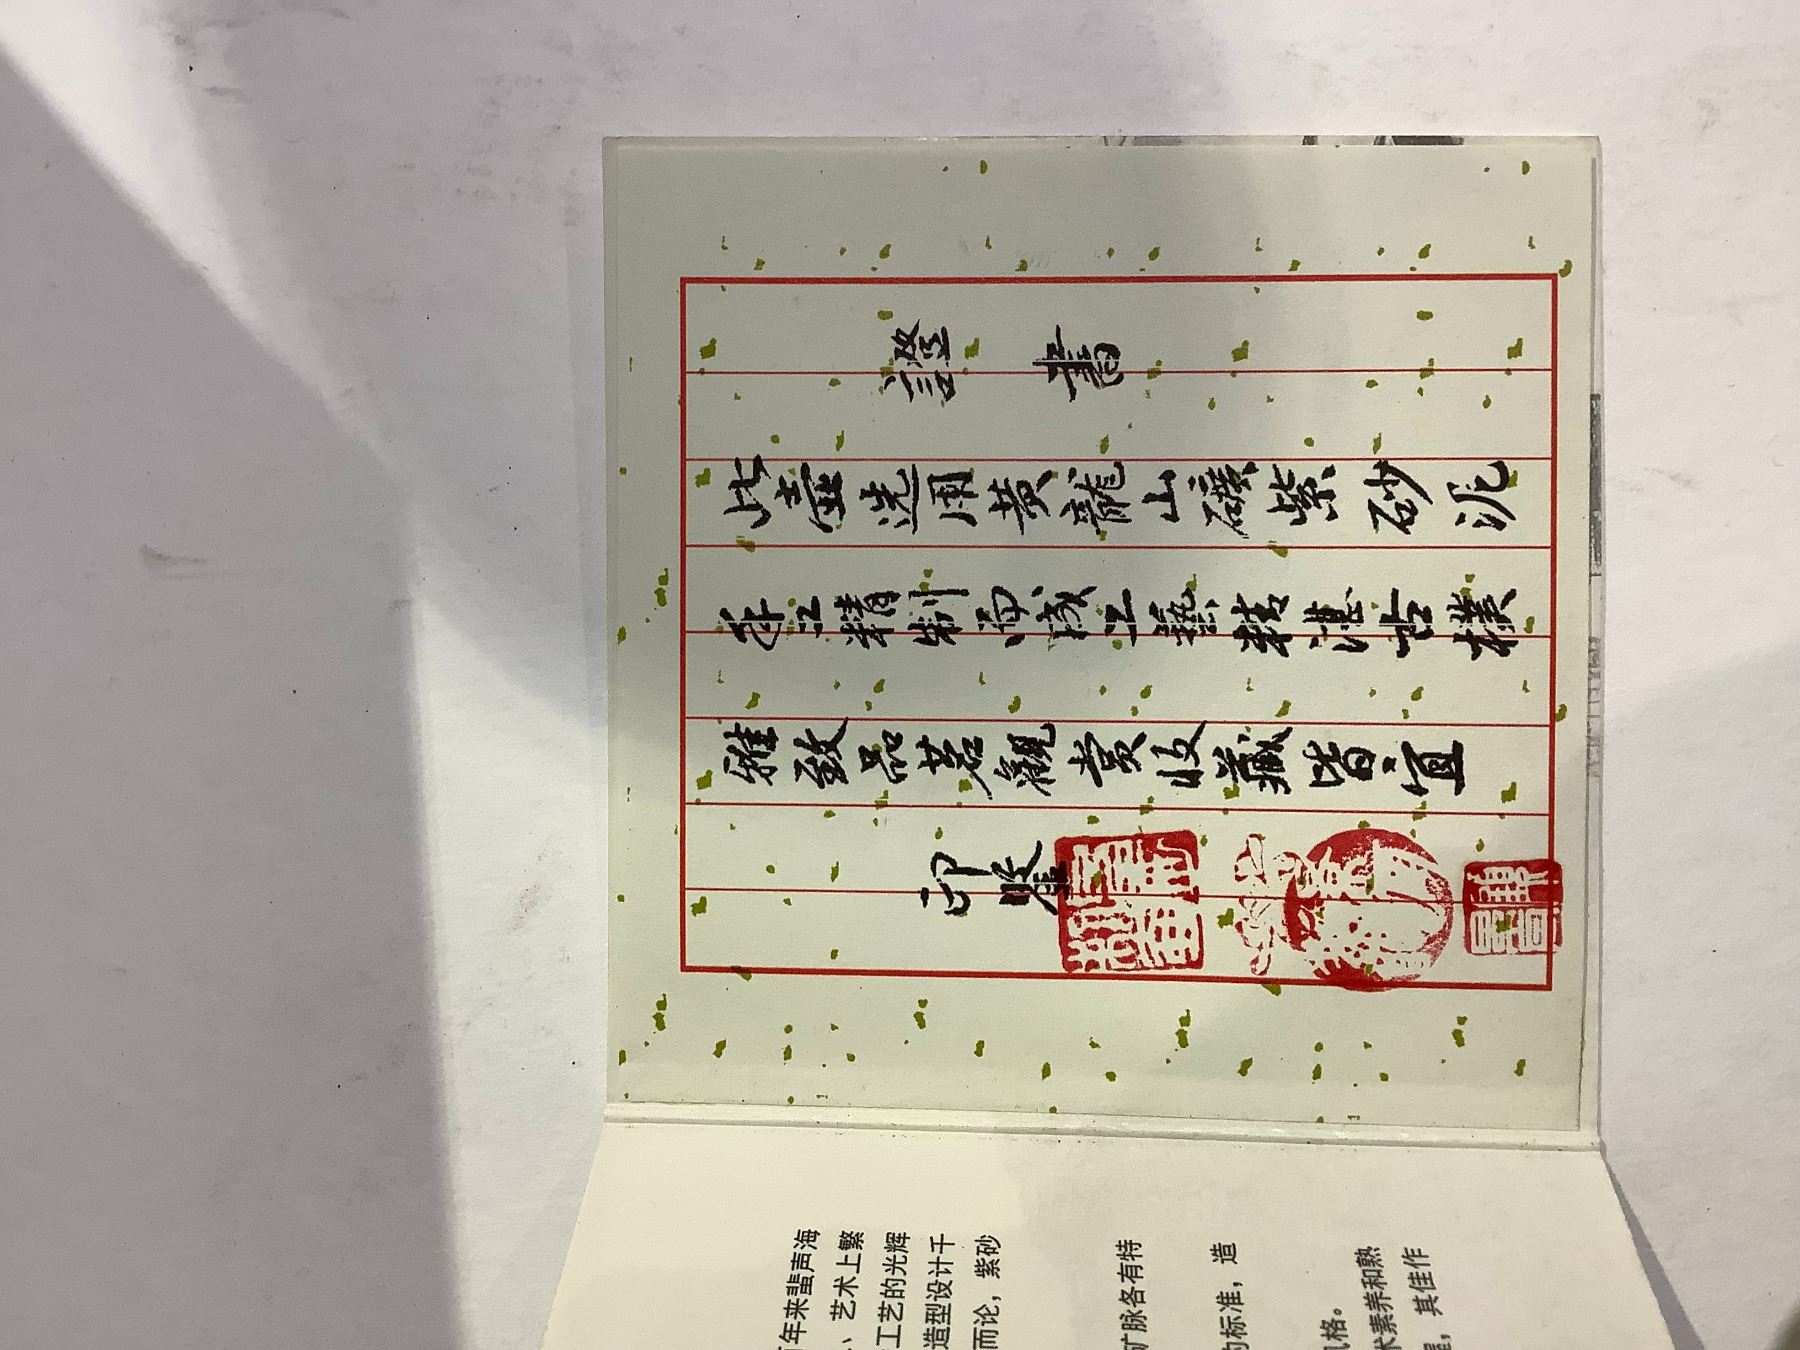 證書
此壺選用黃龍山礦紫砂泥
手工精制而成工藝精湛古樸
雅致品茗觀賞收藏皆宜
印鑒
年来蜚声海
、艺术上繁
工艺的光辉
造型设计千
而论，紫砂
矿脉各有特
的标准，造
风格。
术素养和熟
，其佳作